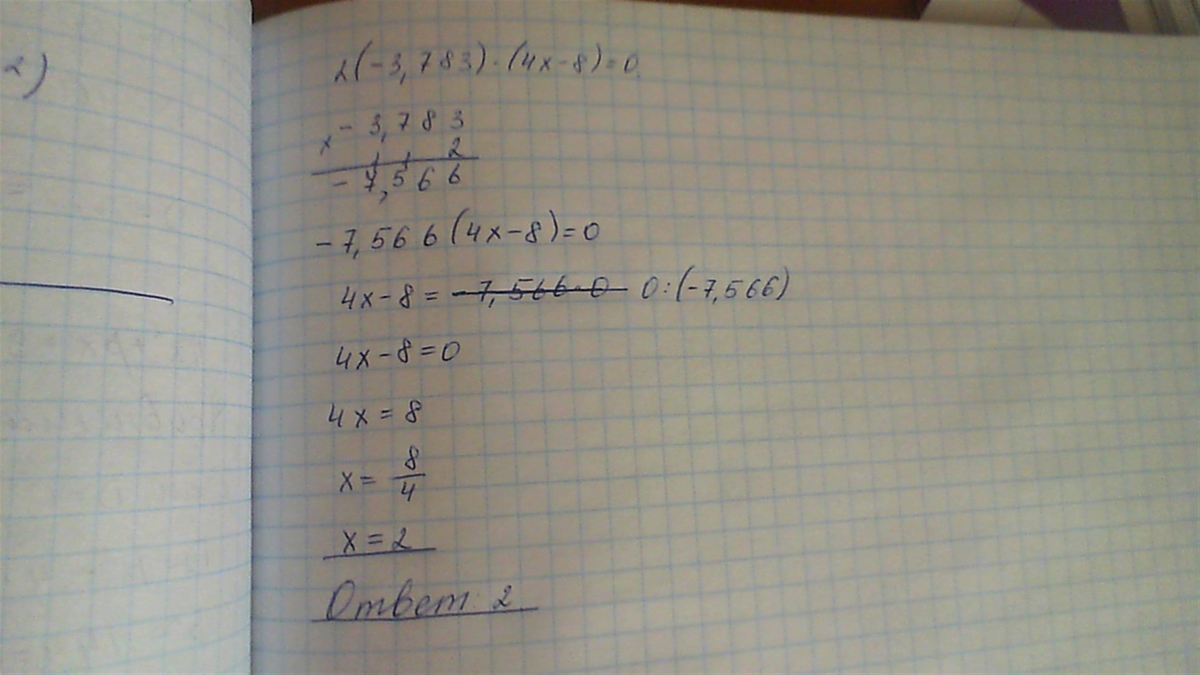 2)
2(-3,783)·(4x-8)=0
- 3,783
x 2
- 7,566
-7,566(4x-8)=0
4x-8= -7,566·0 0:(-7,566)
4x-8=0
4x=8
x= 8/4
x=2
Ответ: 2